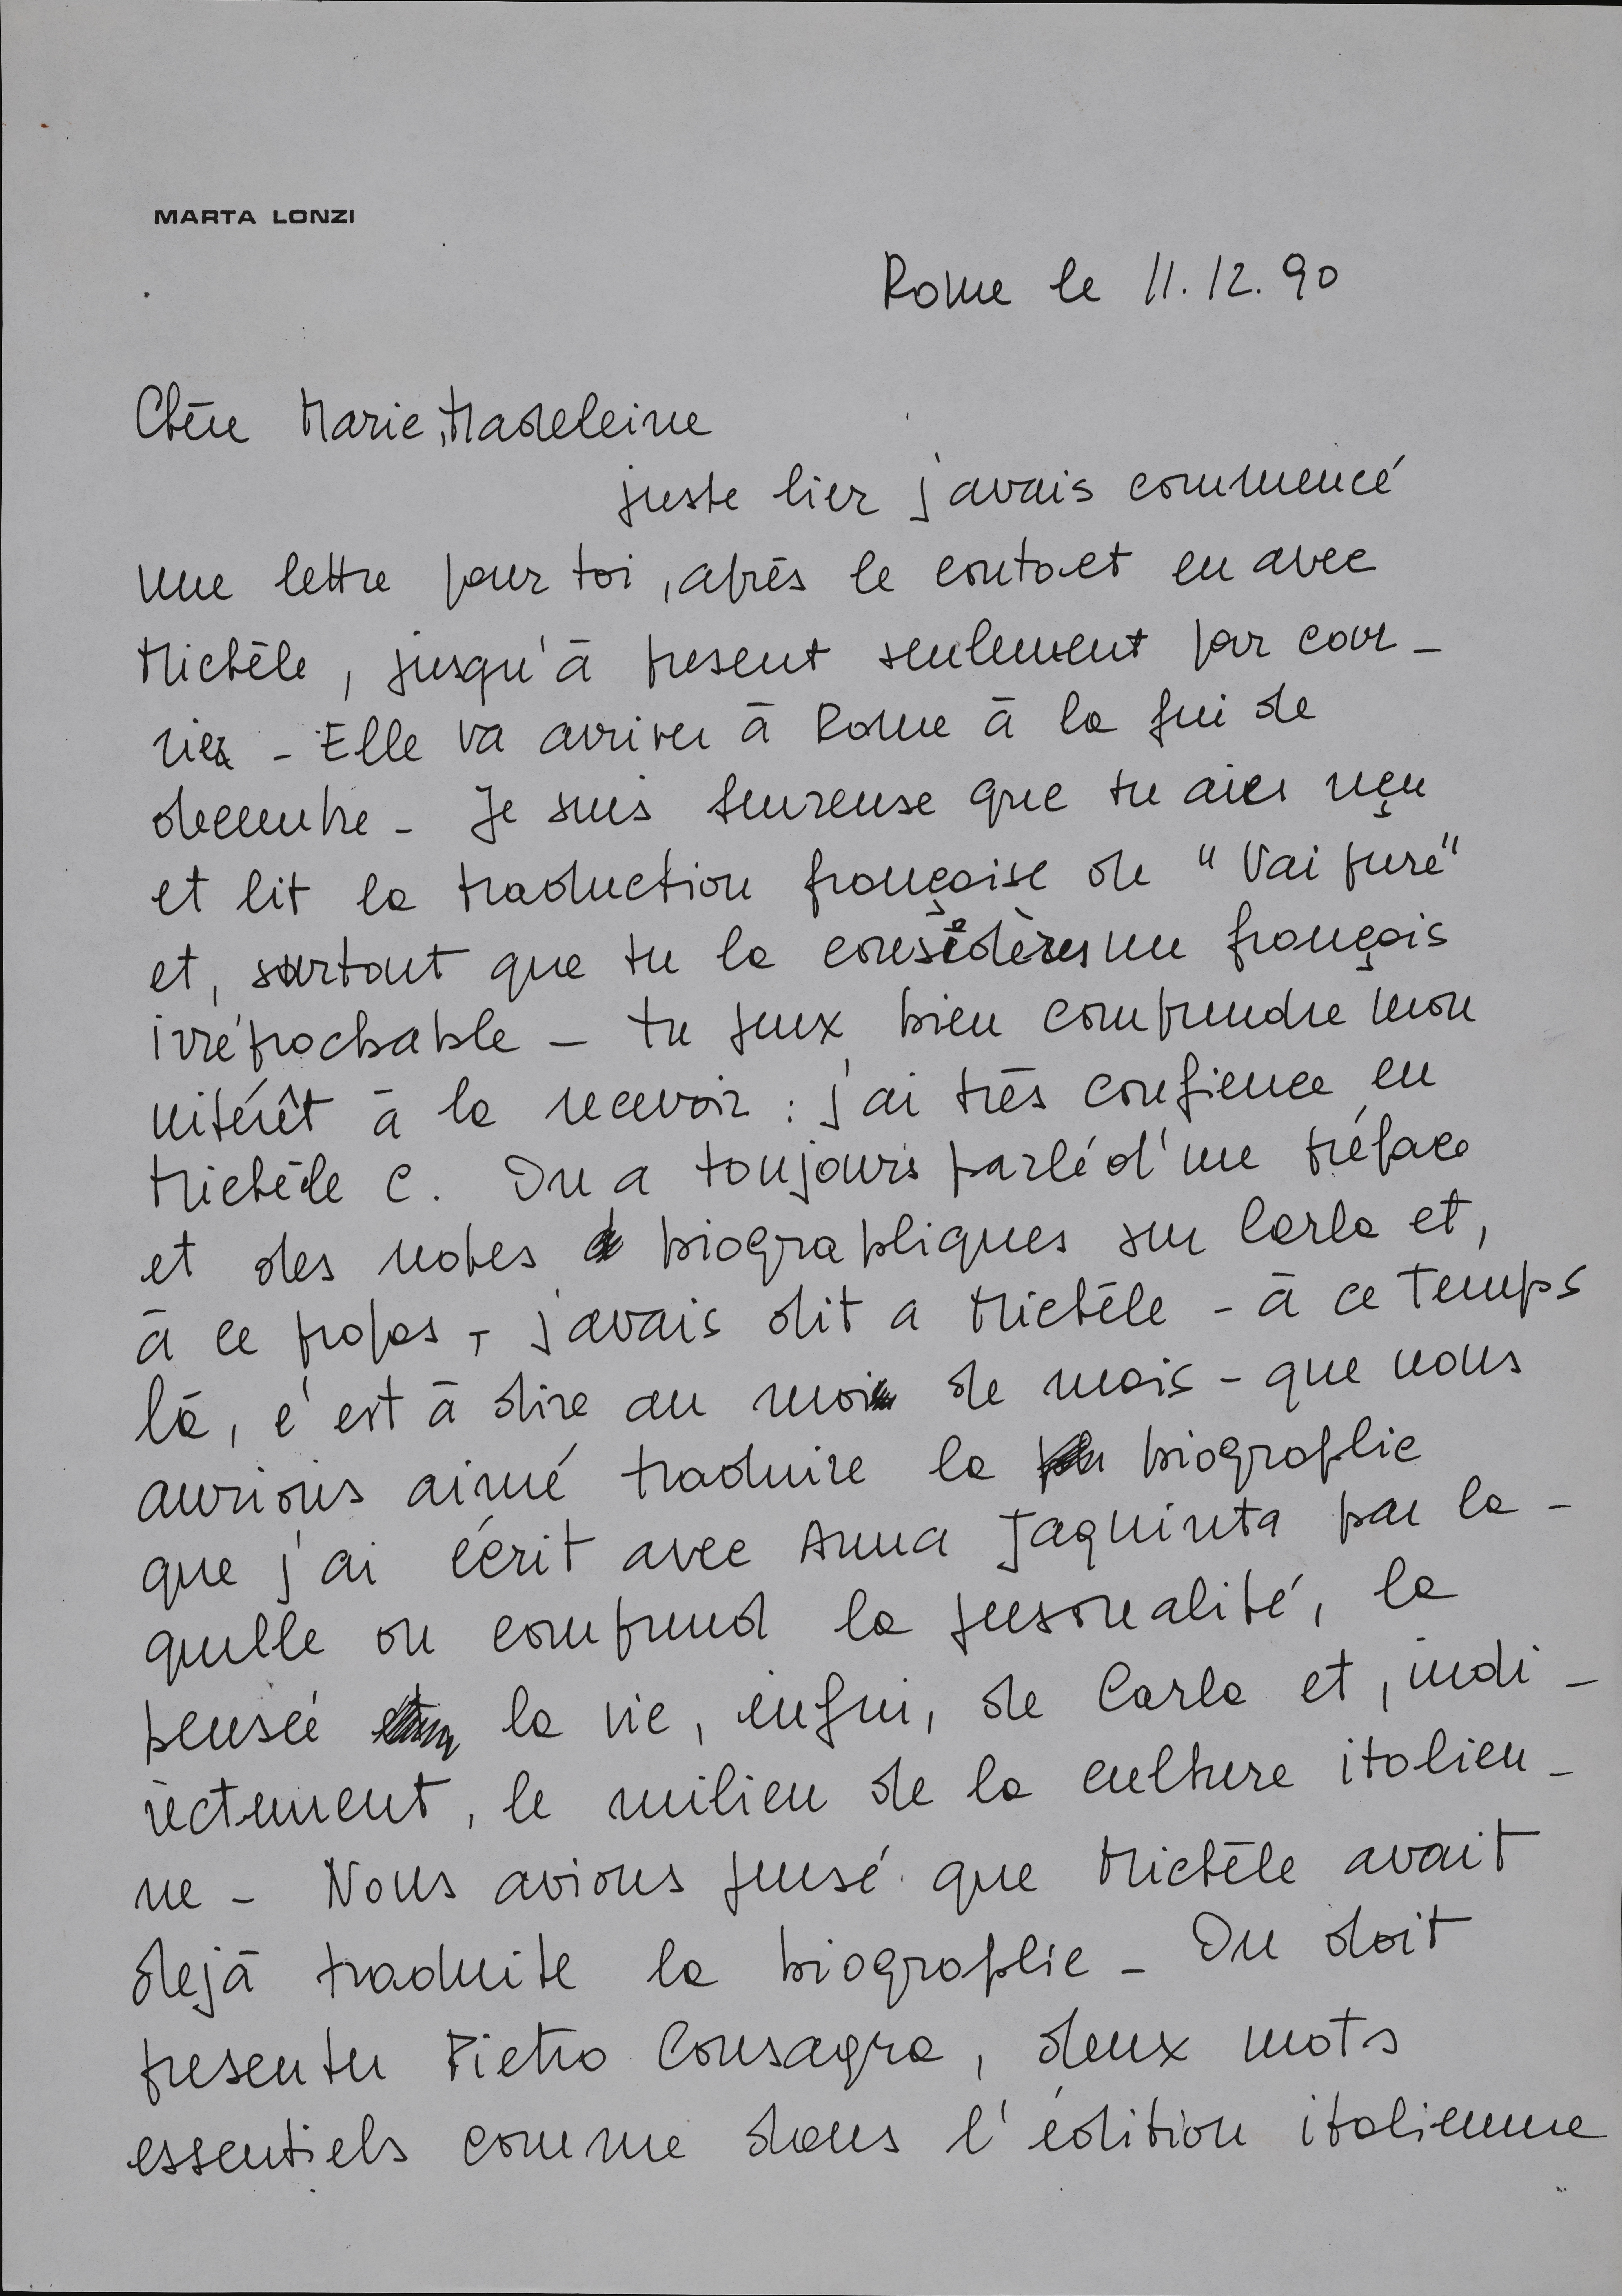 MARTA LONZI
Rome le 11.12.90
Chère Marie Madeleine
juste hier j'avais commencé
une lettre pour toi, après le contact eu avec
Michèle, jusqu'à present seulement par cour-
rier - Elle va arriver à Rome à la fin de
decembre - Je suis heureuse que tu aies reçu
et lit la traduction française de "Vai pure"
et, surtout que tu la considères un français
irréprochable - tu peux bien comprendre mon
intérêt à la recevoir : j'ai très confience en
Michèle C. On a toujours parlé d'une préface
et des notes biographiques sur Carla et,
à ce propos, j'avais dit a Michèle - à ce temps
là, c'est à dire au mois de mais - que nous
aurions aimé traduire la biographie
que j'ai écrit avec Anna Jaquinta par la-
quelle on comprend la personalité, la
pensée la vie, enfin, de Carla et, indi-
rectement, le milieu de la culture italien-
ne - Nous avions pensé que Michèle avait
dejà traduite la biographie - On doit
presenter Pietro Consagra, deux mots
essentiels comme dans l'édition italienne